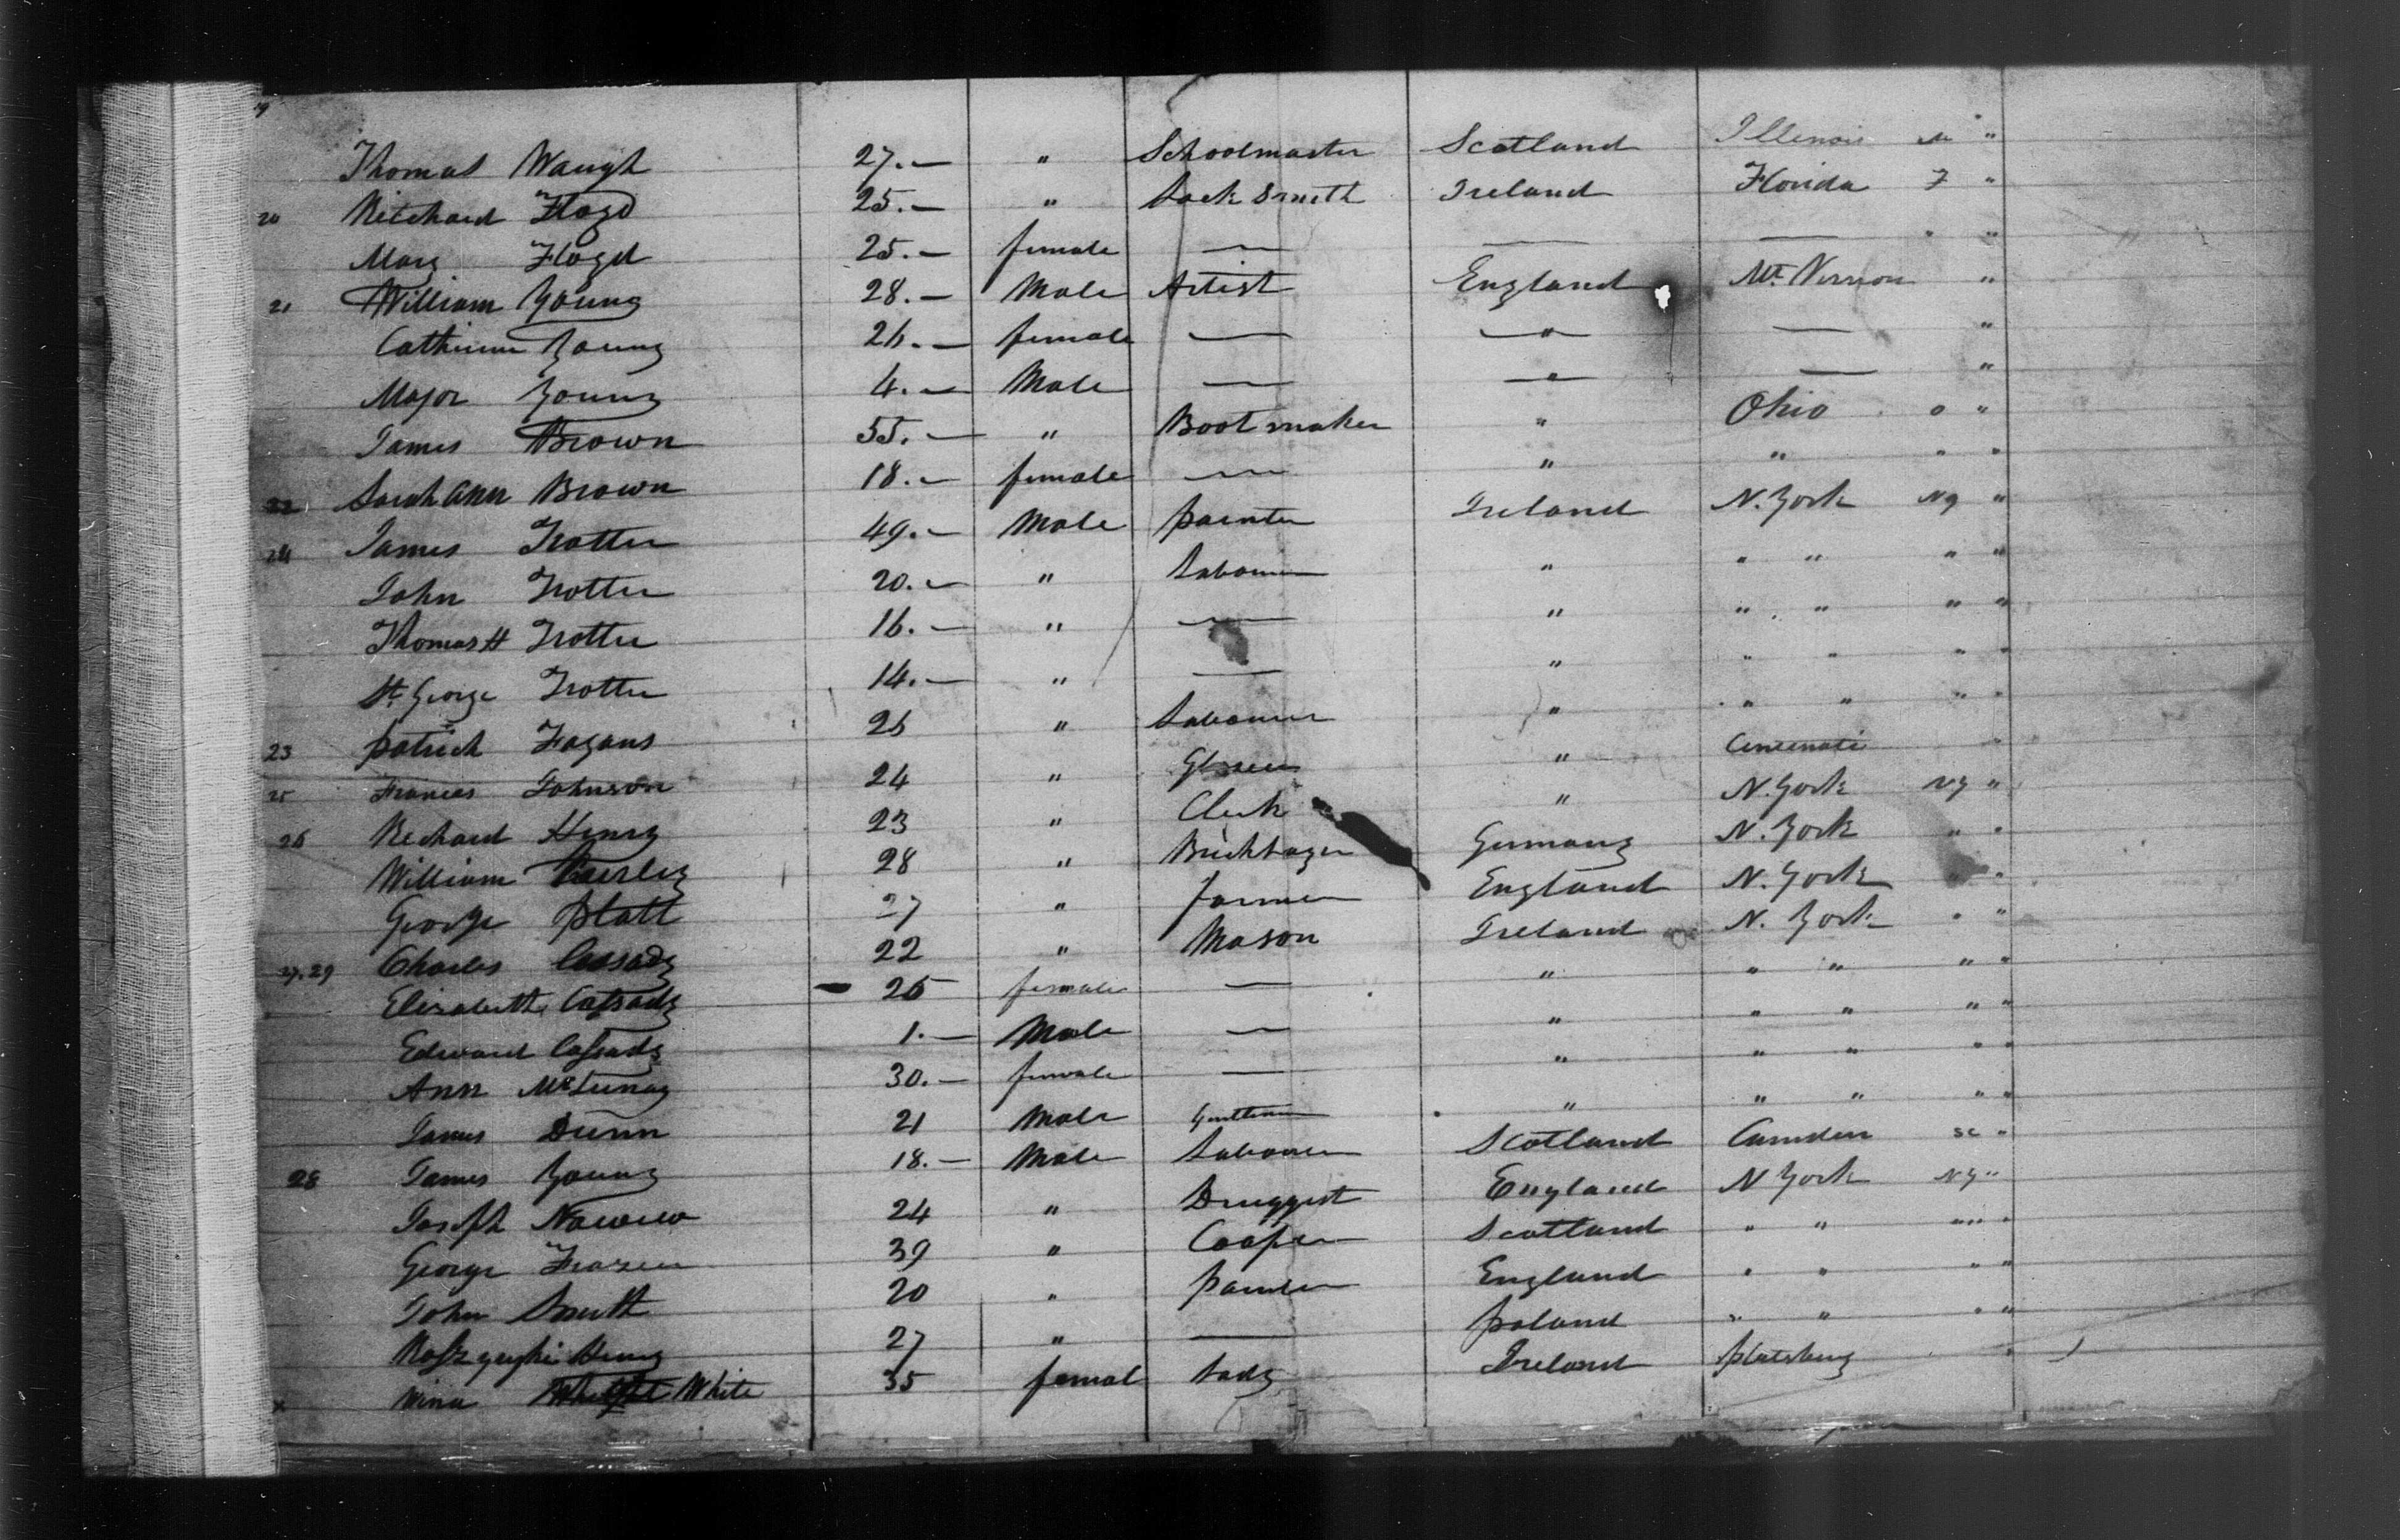 19
Thomas Waugh 27. — " Schoolmaster Scotland Illenois "
20 Ritchard Floyd 25. — " Lock Smith Ireland Florida F "
Mary Floyd 25. — female — — — " "
21 William Young 28. — Male Artist England Mt. Vernon "
Catherine Young 26. — female — " — "
Major Young 4. — Male — " — "
James Brown 55. — " Boot maker " Ohio o "
22 Sarah Ann Brown 18. — female — " " " "
24 James Trotter 49. — Male painter Ireland N. York Ny "
John Trotter 20. — " Labourer " " " " "
Thomas H Trotter 16. — " — " " " " "
St. George Trotter 14. — " — " " " " "
23 patrick Fagans 26 " Labourer " " " " "
25 Frances Johnson 24 " " Cincinati "
26 Richard Henry 23 " Clerk " N. York Ny "
William 28 " Bricklayer Germany N. York " "
George platt 27 " farmer England N. York " "
27.29 Charles Cassady 22 " Mason Ireland N. York " "
Elizabeth Cassady 26 female — " " " " "
Edward Cassady 1. — Male — " " " " "
Ann 30. — female — " " " " "
James Dunn 21 Male Gentleman " " " " "
28 James Young 18. — Male Labourer Scotland Camden sc "
Joseph 24 " Druggist England N York Ny "
George Frazer 39 " Cooper Scotland " " " "
John Smith 20 " painter England " " " "
Henry 27 " — poland " " " "
x Nina White 35 femal Lady Ireland platsburg "